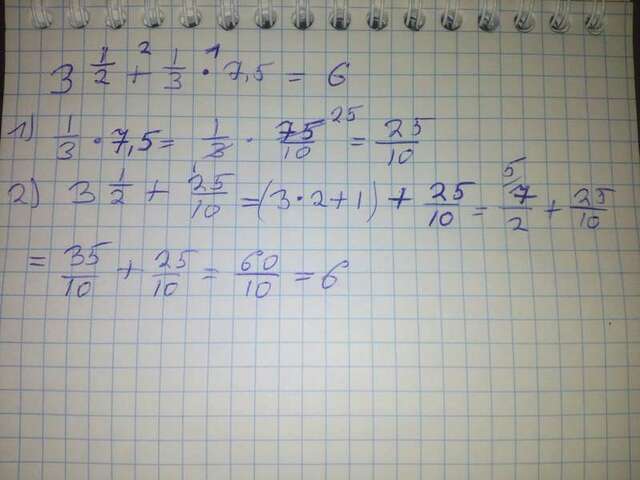 3 1/2 + 1/3 · 7,5 = 6
1) 1/3 · 7,5 = 1/3 · 75/10 25 = 25/10
2) 3 1/2 + 25/10 = (3 · 2 + 1) + 25/10 = 5/ 7/2 + 25/10
= 35/10 + 25/10 = 60/10 = 6